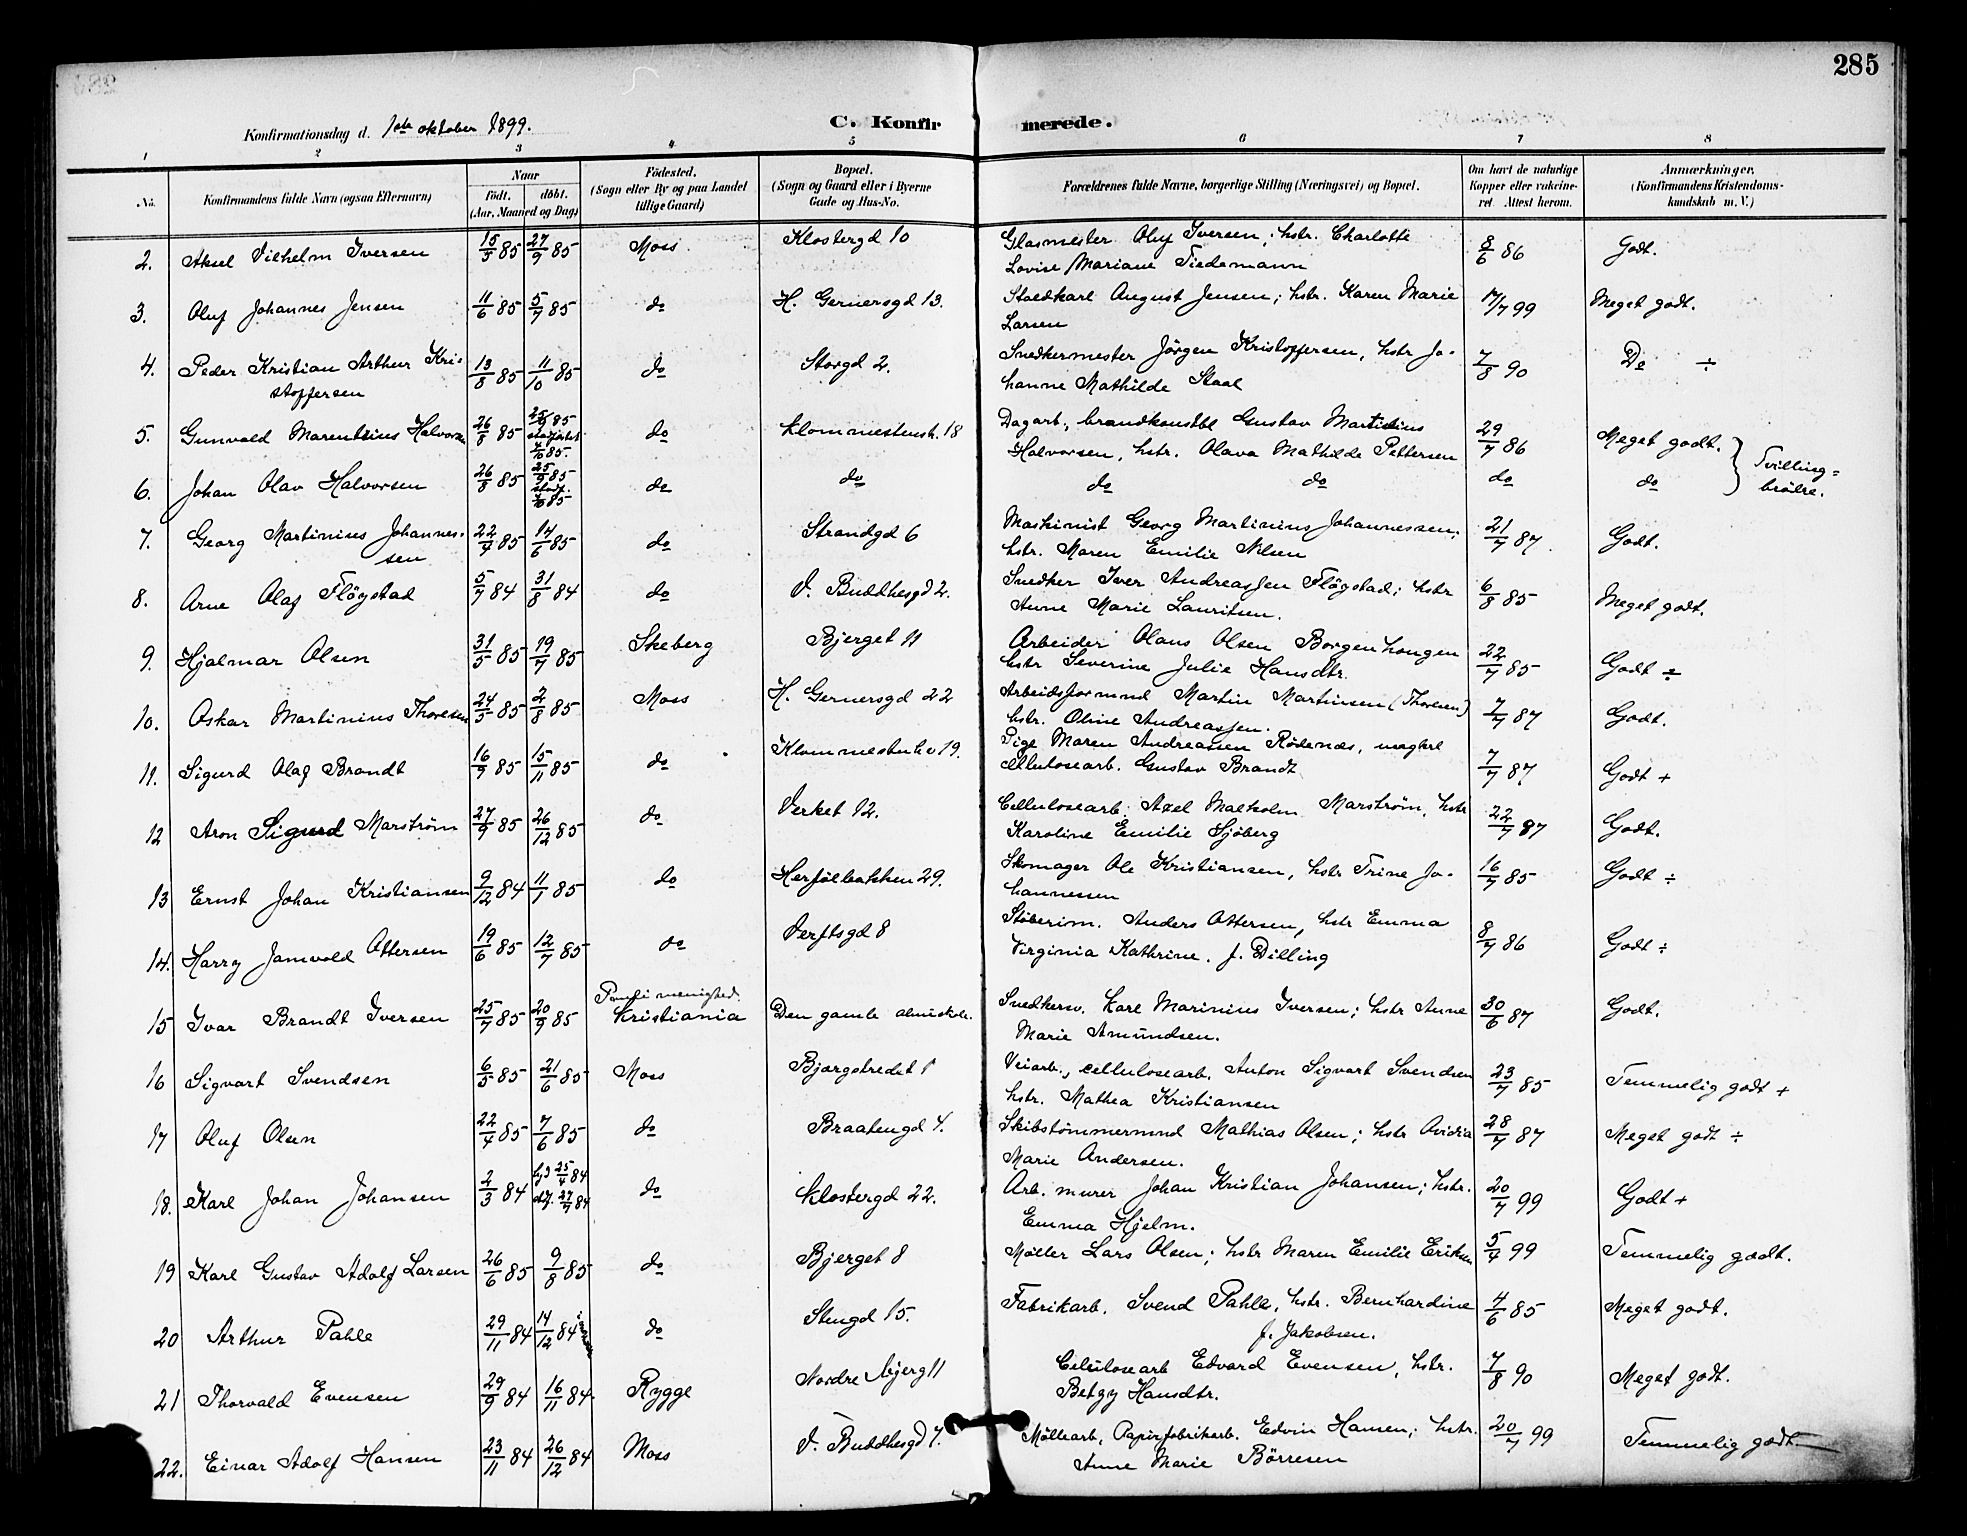 285
Konfirmationsdag d. 1ste oktober 1899.
C. Konfirmerede.
1 2 3 4 5 6 7 8
No. Konfirmandens fulde Navn (ogsaa Efternavn) Naar födt. döbt. (Aar, Maaned og Dag) Födested. (Sogn eller By og paa Landet tillige Gaard) Bopæl. (Sogn og Gaard eller i Byerne Gade og Hus-No. Forældrenes fulde Navne, borgerlige Stilling (Næringsvei) og Bopæl. Om havt de naturlige Kopper eller vakcineret. Attest herom. Anmærkninger. (Konfirmandens Kristendomskundskab m. V.)
2. Aksel Vilhelm Iversen 15/5 85 27/9 85 Moss Klostergd 10 Glasmester Oluf Iversen; hstr. Charlotte 8/6 86 Godt.
Lovise Mariane Tiedemann
3. Oluf Johannes Jensen 11/6 85 5/7 85 do H. Gernersgd 13. Staldkarl August Jensen; hstr. Karen Marie 17/7 99 Meget godt.
Larsen
4. Peder Kristian Arthur Kri- 13/8 85 11/10 85 do Storgd 2. Snedkermester Jörgen Kristoffersen, hstr Jo- 7/8 90 Do ÷
stoffersen hanne Mathilde Staal
5. Gunvald Marentius Halvorsen 26/8 85 25/9 85 stadfestet /10 85. do Klommestensb. 18 Dagarb., brandkonstbl Gustav Martinius 29/7 86 Meget godt.
Halvorsen, hstr. Olava Mathilde Pettersen
6. Johan Olav Halvorsen 26/8 85 25/9 85 stadf. /10 85 do do do do do do Tvilling-
brödre.
7. Georg Martinius Johannes- 22/4 85 14/6 85 do Strandgd 6 Maskinist Georg Martinius Johannessen; 21/7 87. Godt.
sen hstr. Maren Emilie Nilsen
8. Arne Olaf Flögstad 5/7 84 31/8 84 do V. Buddhesgd 2. Snedker Iver Andreassen Flögstad; hstr 6/8 85 Meget godt.
Anne Marie Lauritsen.
9. Hjalmar Olsen 31/5 85 19/7 85 Skeberg Bjerget 11 Arbeider Olaus Olsen Borgenhaugen 22/7 85 Godt ÷
hstr Severine Julie Hansdtr.
10. Oskar Martinius Thoresen 24/5 85 2/8 85 Moss H. Gernersgd 22 Arbeidsformnd Martin Martinsen (Thoresen) 7/7 87 Godt.
hstr. Oline Andreassen.
11. Sigurd Olaf Brandt 16/9 85 15/11 85 do 19. Pige Maren Andreassen Rødenæs, ungkrl 7/7 87 Godt +
cellulosearb. Gustav Brandt
12 Aron Sigurd Marström 27/9 85 26/12 85 do Verket 12. Cellulosearb. Axel Malkolm Marström, hstr 22/7 87 Godt.
Karoline Emilie Sjöberg
13 Ernst Johan Kristiansen 9/12 84 11/1 85 do Herföelbakken 29. Skomager Ole Kristiansen, hstr Trine Jo- 16/7 85 Godt ÷
hannessen
14. Harry Jamvold Ottersen 19/6 85 12/7 85 do Verftsgd 8 Støberim. Anders Ottersen, hstr Emma 8/7 86 Godt ÷
Virginia Kathrine. f. Dilling
15 Ivar Brandt Iversen 25/7 85 20/9 85 Pauli menighed. Kristiania Den gamle almuskole. Snedkersv. Karl Marinius Iversen; hstr Anne 30/6 87 Godt.
Marie Amundsen.
16 Sigvart Svendsen 6/5 85 21/6 85 Moss Bjørgstredet 1 Veiarb., cellulosearb. Anton Sigvart Svendsen 23/7 85 Temmelig godt +
hstr. Mathea Kristiansen
17 Oluf Olsen 22/4 85 7/6 85 do Braatengd 4. Skibstömmermnd Mathias Olsen; hstr Ovidia 28/7 87 Meget godt ÷
Marie Andersen.
18. Karl Johan Johansen 2/3 84 hjd 25/4 84 stdf. 27/7 84 do Klostergd 22. Arb. murer Johan Kristian Johansen; hstr. 20/7 99 Godt +
Emma Hjelm.
19 Karl Gustav Adolf Larsen 26/6 85 9/8 85 do Bjerget 8 Møller Lars Olsen; hstr Maren Emilie Eriksen 5/4 99 Temmelig godt.
20 Arthur Pahle 29/11 84 14/12 84 do Stengd 15. Fabrikarb. Svend Pahle, hstr. Bernhardine 4/6 85 Meget godt.
f. Jakobsen.
21 Thorvald Evensen 29/9 84 16/11 84. Rygge Nordre bjerg 11 Celulosearb Edvard Evensen, hstr. 7/8 90 Meget godt.
Betzy Hansdtr.
22. Einar Adolf Hansen 23/11 84 26/12 84 Moss V. Buddhesgd 7. Møllearb, Papirfabrikarb. Edvin Hansen; hstr. 20/7 99 Temmelig godt.
Anne Marie Börresen